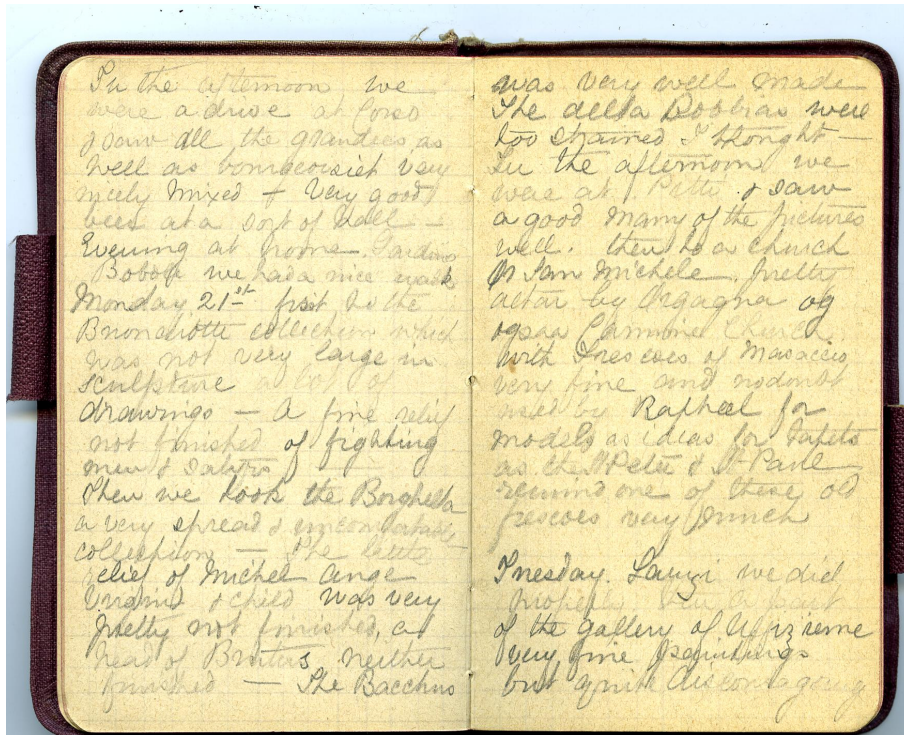 In the afternoon we
were a drive at Corso
& saw all the grandees as
well as very
nicely mixed + very good
beer at a sort of hall –
Evening at home. Jardino
Boboli we had a nice walk
Monday 21st first to the
collection which
was not very large in
sculpture a lot of
drawings – A fine relief
not finished of fighting
men & satyrs
Then we took the
a very spread & uncomfortable
collection – The little
relief of Michel Ange
Virgin & child was very
pretty not finished, a
head of Brutus neither
finished – The Bacchus
was very well made
The della Bobbias were
too strained I thought –
In the afternoon we
were at Pitti & saw
a good many of the pictures
well. then to a church
Or San Michele. pretty
altar by Orgagna og
ogsaa Carmine Church
with Frescoes of Masaccio
very fine and nodoubt
used by Raphael for
models as ideas for Tapets
as the St Peter & St Paul
remind one of these old
frescoes very much
Tuesday. we did
properly a part
of the gallery of
very fine paintings
but quite discouraging